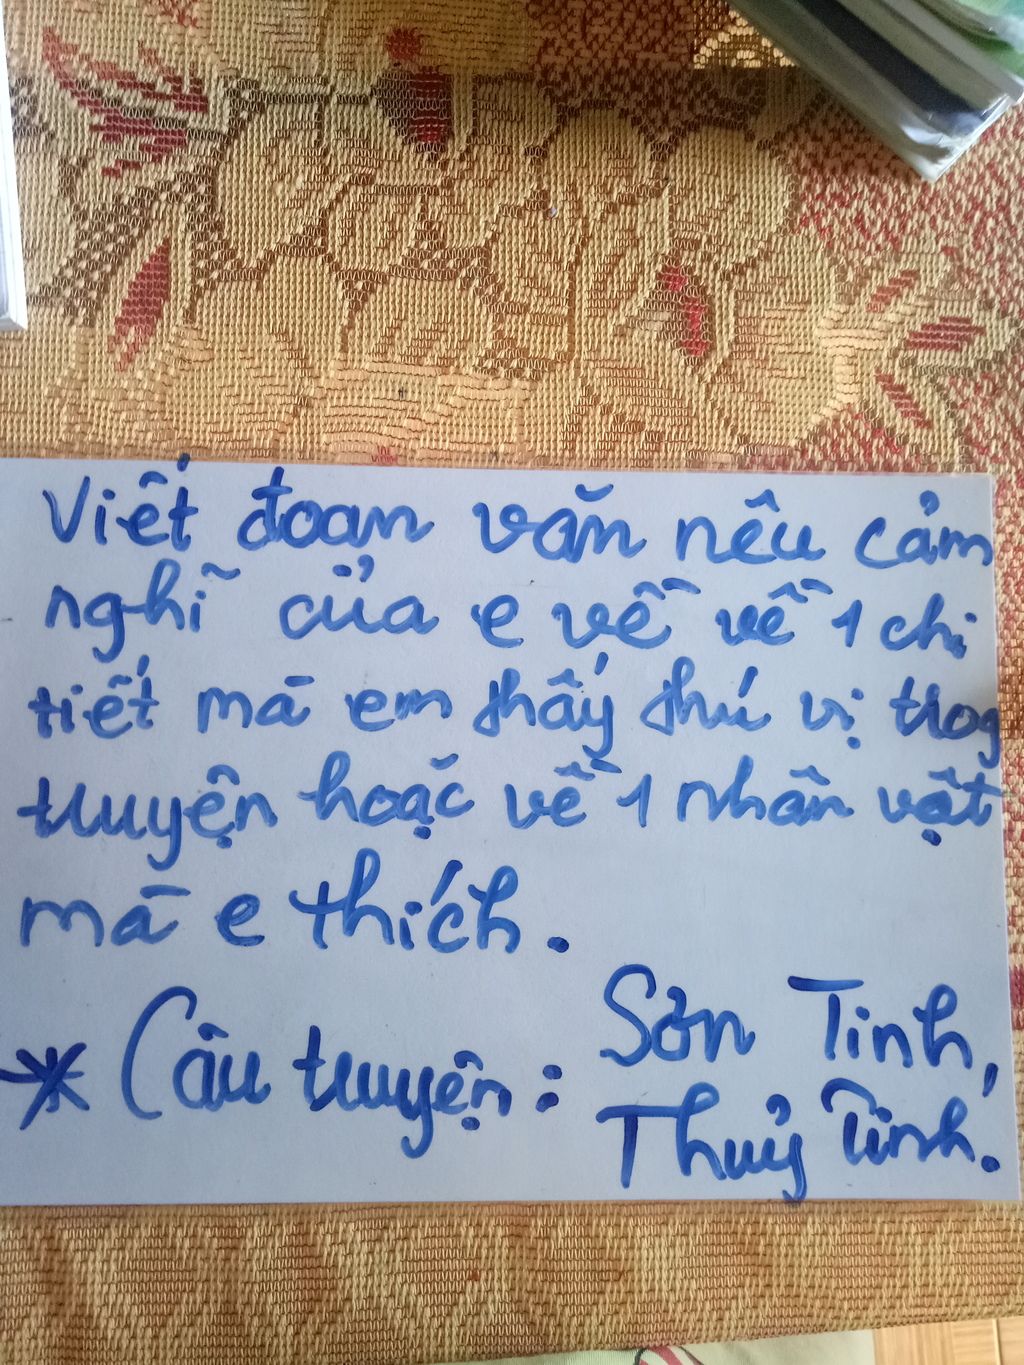 Viết đoạn văn nêu cảm
nghĩ của e về về 1 chi
tiết mà em thấy thú vị trog
truyện hoặc về 1 nhân vật
mà e thích.
* Câu truyện : Sơn Tinh,
Thuỷ Tinh.